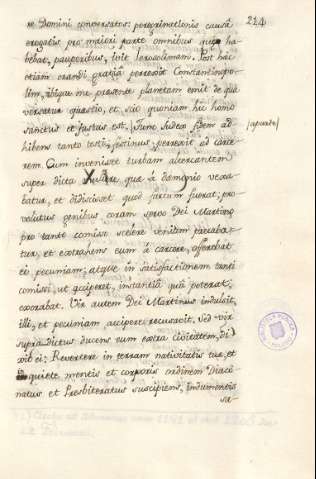 214
re Domini conversatos: peregrinationis causâ
erogatis pro maiori parte omnibus, quæ ha-
bebat, pauperibus, ivit Ierosolimam. Post hæc
etiam orandi gratiâ perrexit Constantinopo-
lim, ibique me presente planetam emit de qua
versatur quæstio, et sic quoniam hic homo
sanctus et justus est. Tunc Iudex fidem ad-
hibens tanto testi, festinus perrexit ad carce-
rem. Cum invenisset turbam altercantem
super dicta muliere, quæ à dæmonio vexa-
batur, et didicisset quod furtum fuerat, pro-
volutus genibus coram servo Dei Martino
pro tanto comisso scelere veniam precaba-
tur, et extrahens eum à carcere, offerebat
ei pecuniam, atque in satisfactionem tanti
comissi, ut acciperet, instantiâ quâ poterat,
exorabat. Vir autem Dei Martinus indulsit
illi, et pecuniam accipere recusavit. Sed vir
supradictus ducens eum extra civitatem, di-
xit ei: Revertere in terram nativitatis tuæ, et
in quiete mentis et corporis ordinem Diaco-
natus et Presbiteratus suscipiens, indumentis
sa-